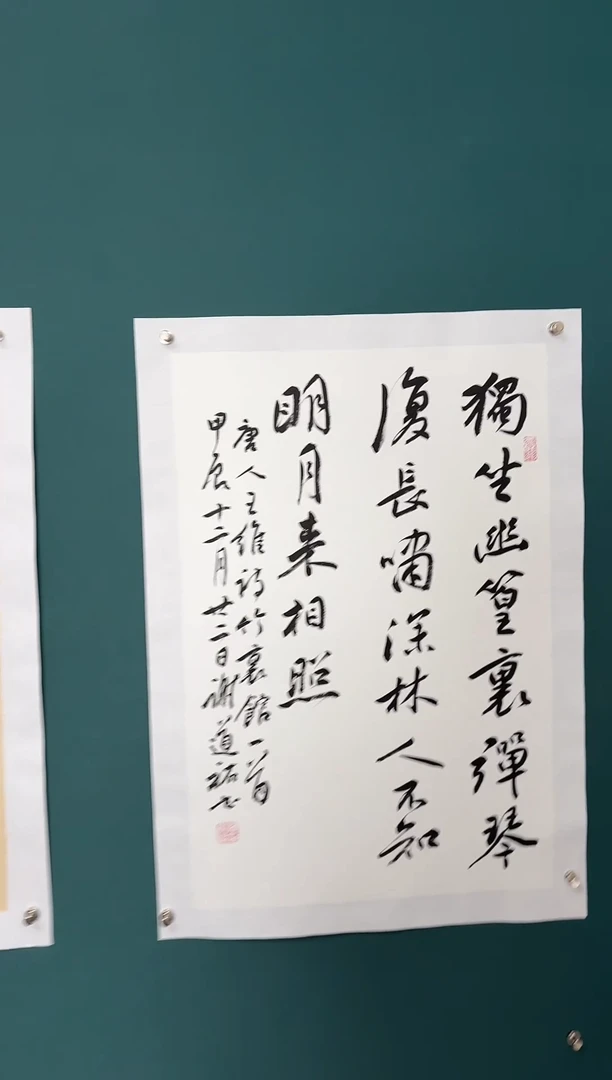 獨坐幽篁裏彈琴
復長嘯深林人不知
明月来相照
唐人王維詩竹裏館一首
甲辰十二月廿二日謝道祐書